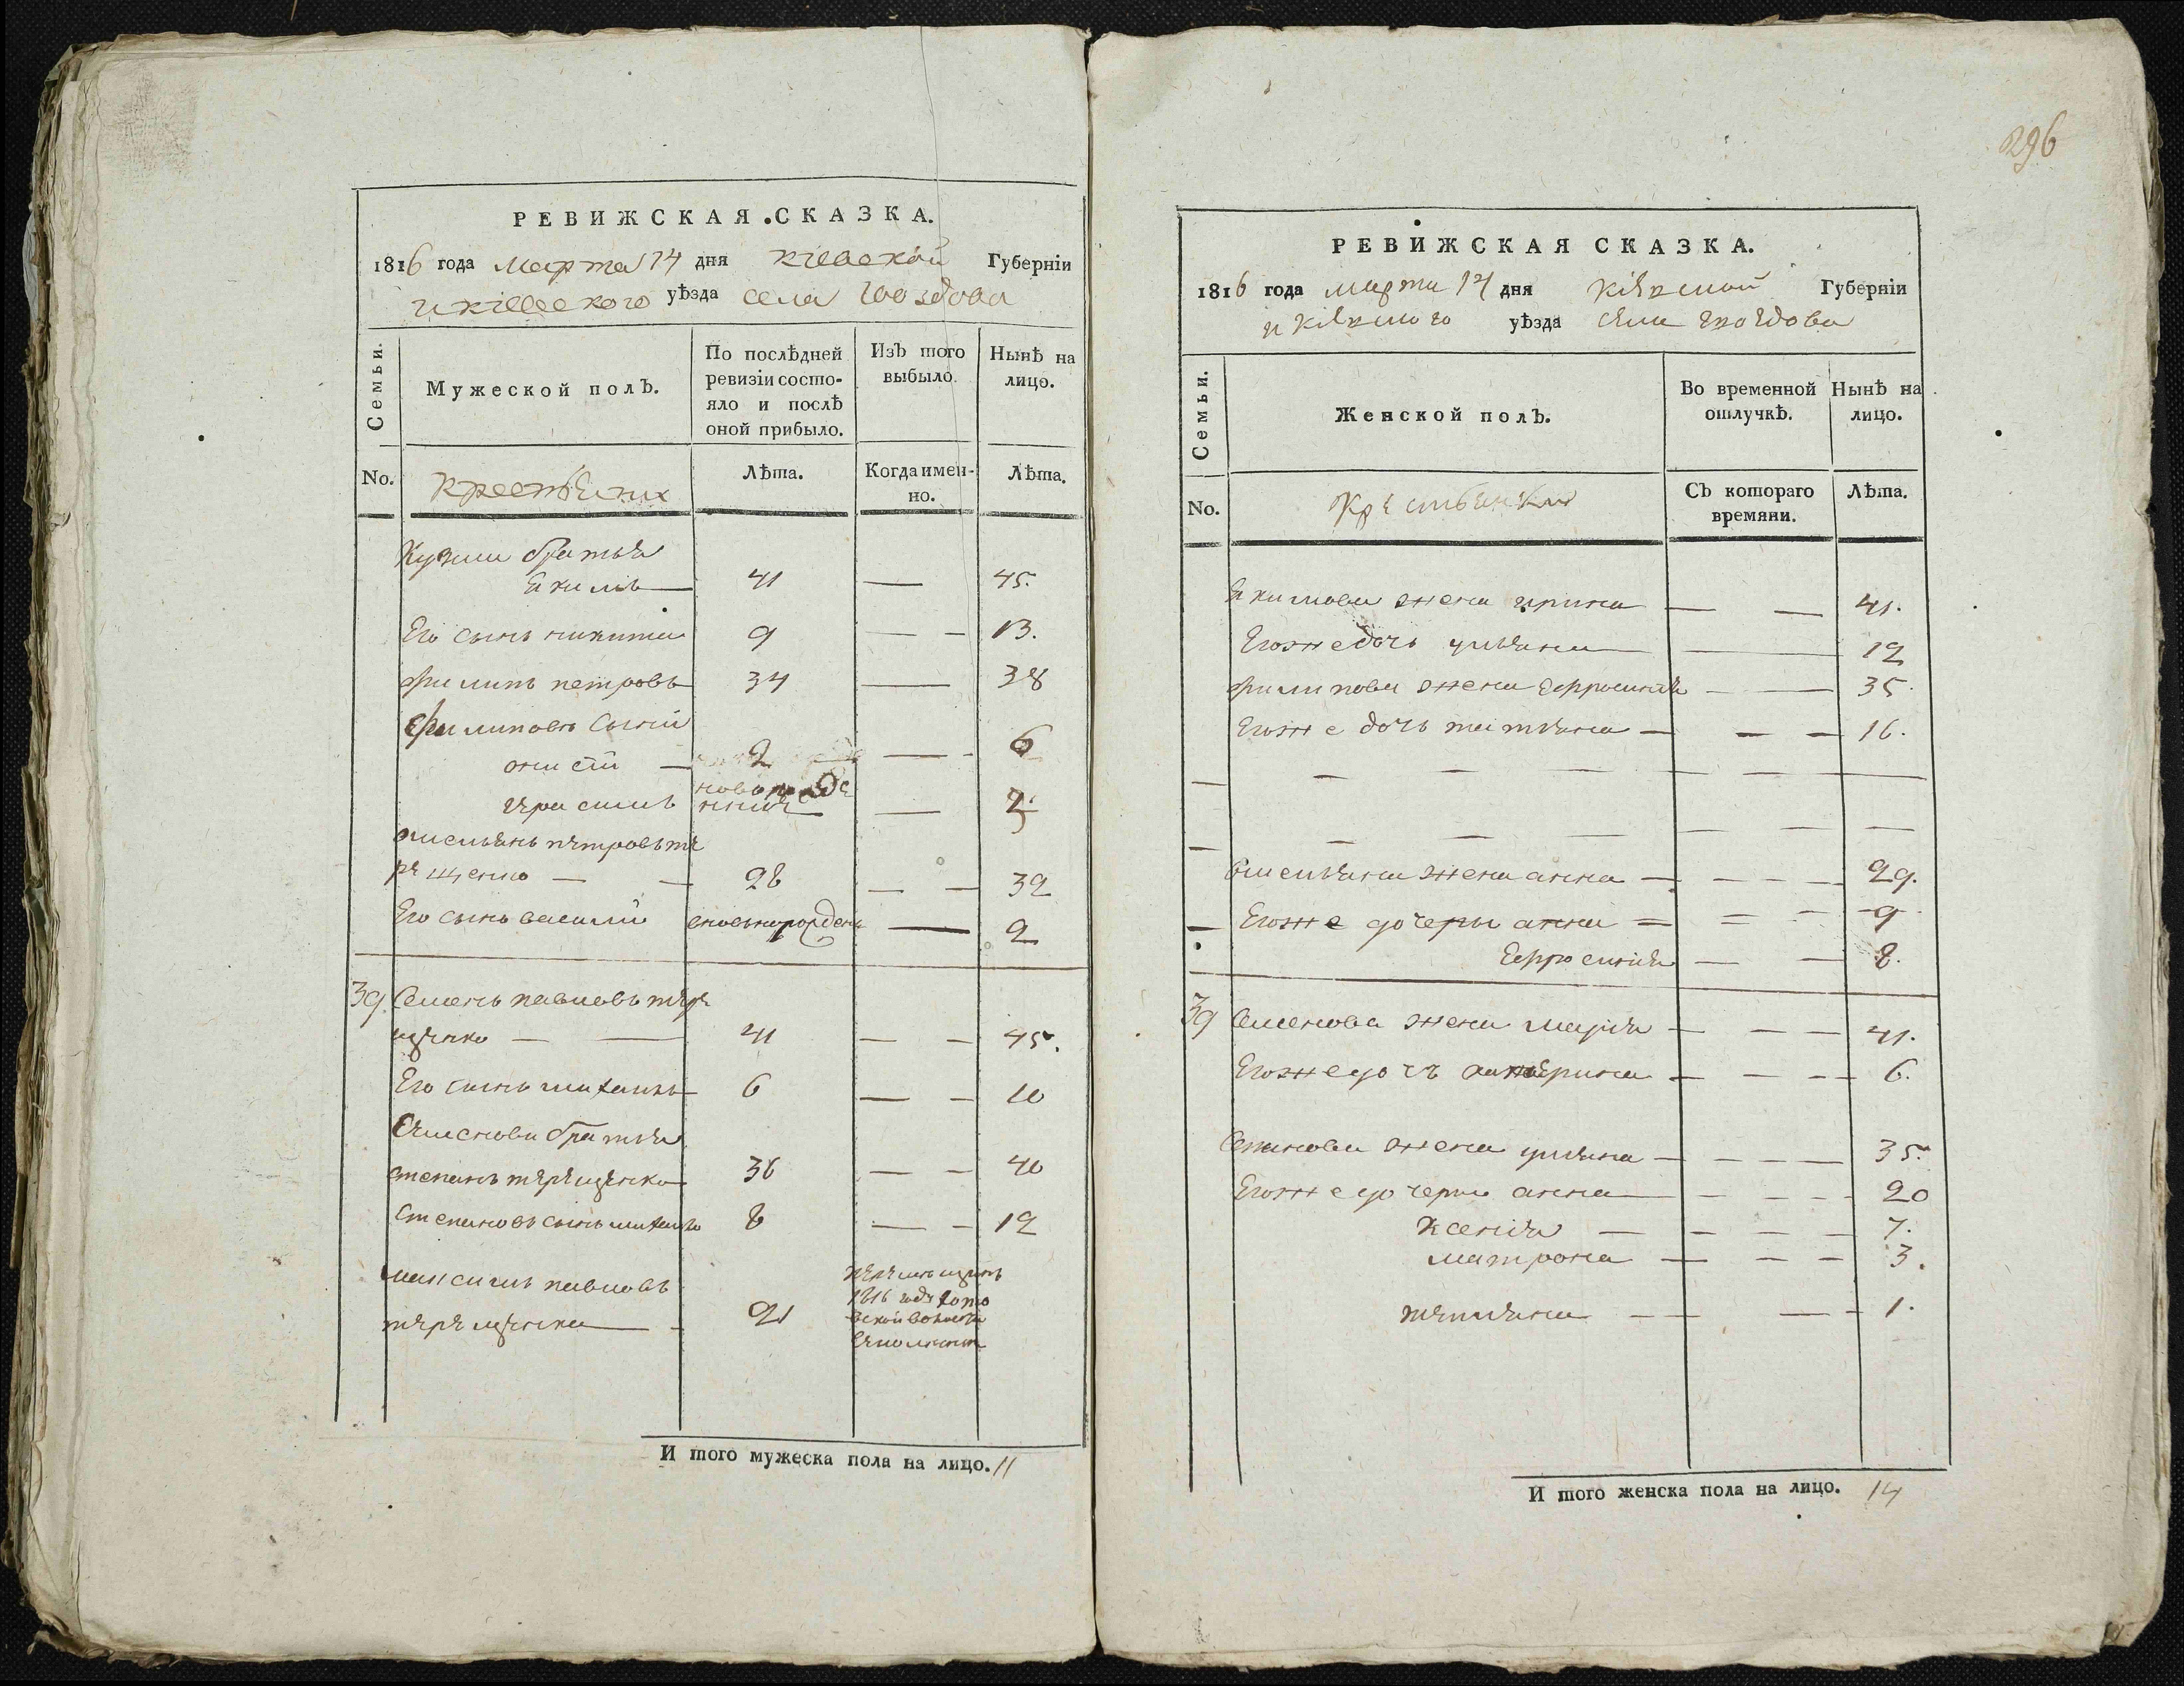 РЕВИЖСКАЯ СКАЗКА.
1816 года марта 14 дня кіевской Губерніи
и кіевского уѣзда села гвоздова
Семьи.
Мужеской полъ.
По послѣдней ревизіи состо-
яло и послѣ
оной прибыло.
Изъ того
выбыло.
Нынѣ на
лицо.
No.
Лѣта.
Когда имен-
но.
Лѣта.
Кузми братья
Екимъ — 41 — 45.
Его сынъ никита 9 — — 13.
филипъ петровъ 34 — 38
филиповы сыны
— 2 — - 6
герасимъ новорожде
нний — 2.
омельянъ петровъ те
рещенко — — 28 — — 32
Его сынъ василий — 2
39 Семенъ павловъ тере
щенко — — 41 — — 45.
Его сынъ михаилъ 6 — — 10
Семенови братья
степанъ терещенко 36 — — 40
Степановъ сынъ михаилъ 8 — — 12
максимъ павловъ
терещенко — - 21
1816 года
И того мужеска пола на лицо. 11
296
РЕВИЖСКАЯ СКАЗКА.
1816 года марта 14 дня кіевской Губерніи
и кіевского уѣзда села гвоздова
Семьи.
Женской полъ.
Во временной
отлучкѣ.
Нынѣ на
лицо.
No.
Крестьянки
Съ котораго
времяни.
Лѣта.
Екимова жена ирина — — 41.
Егоже дочь ульяна — 12
филипова жена Ефросинія — — 35.
Егоже дочь татьяна — — — 16.
омельяна жена анна — — — — 29.
Егоже дочеры анна = = - - 9
Ефросинія — — 8.
39 Семенова жена марія — — — 41.
Егоже дочъ катерина — — — 6.
Степанова жена ульяна — — — — 35.
Егоже дочери анна — — — - 20
Ксенія — — — — 7.
матрона — — — 3.
татьяна — — — - 1.
И того женска пола на лицо. 14